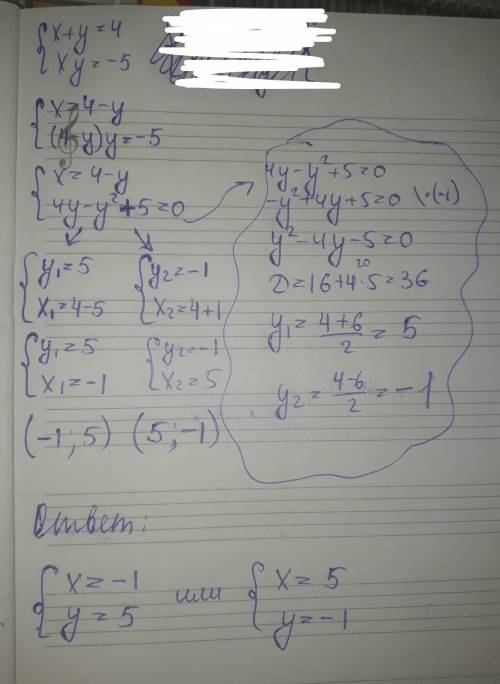 { x+y=4
{ xy=-5
{ x=4-y
{ (4-y)y=-5
{ x=4-y
{ 4y-y²+5=0
4y-y²+5=0
-y²+4y+5=0 \·(-1)
y²-4y-5=0
20
D=16+4·5=36
y₁=4+6/2=5
y₂=4-6/2=-1
{ y₁=5 { y₂=-1
{ x₁=4-5 { x₂=4+1
{ y₁=5 { y₂=-1
{ x₁=-1 { x₂=5
(-1;5) (5;-1)
Ответ:
{ x=-1 или { x=5
{ y=5 { y=-1